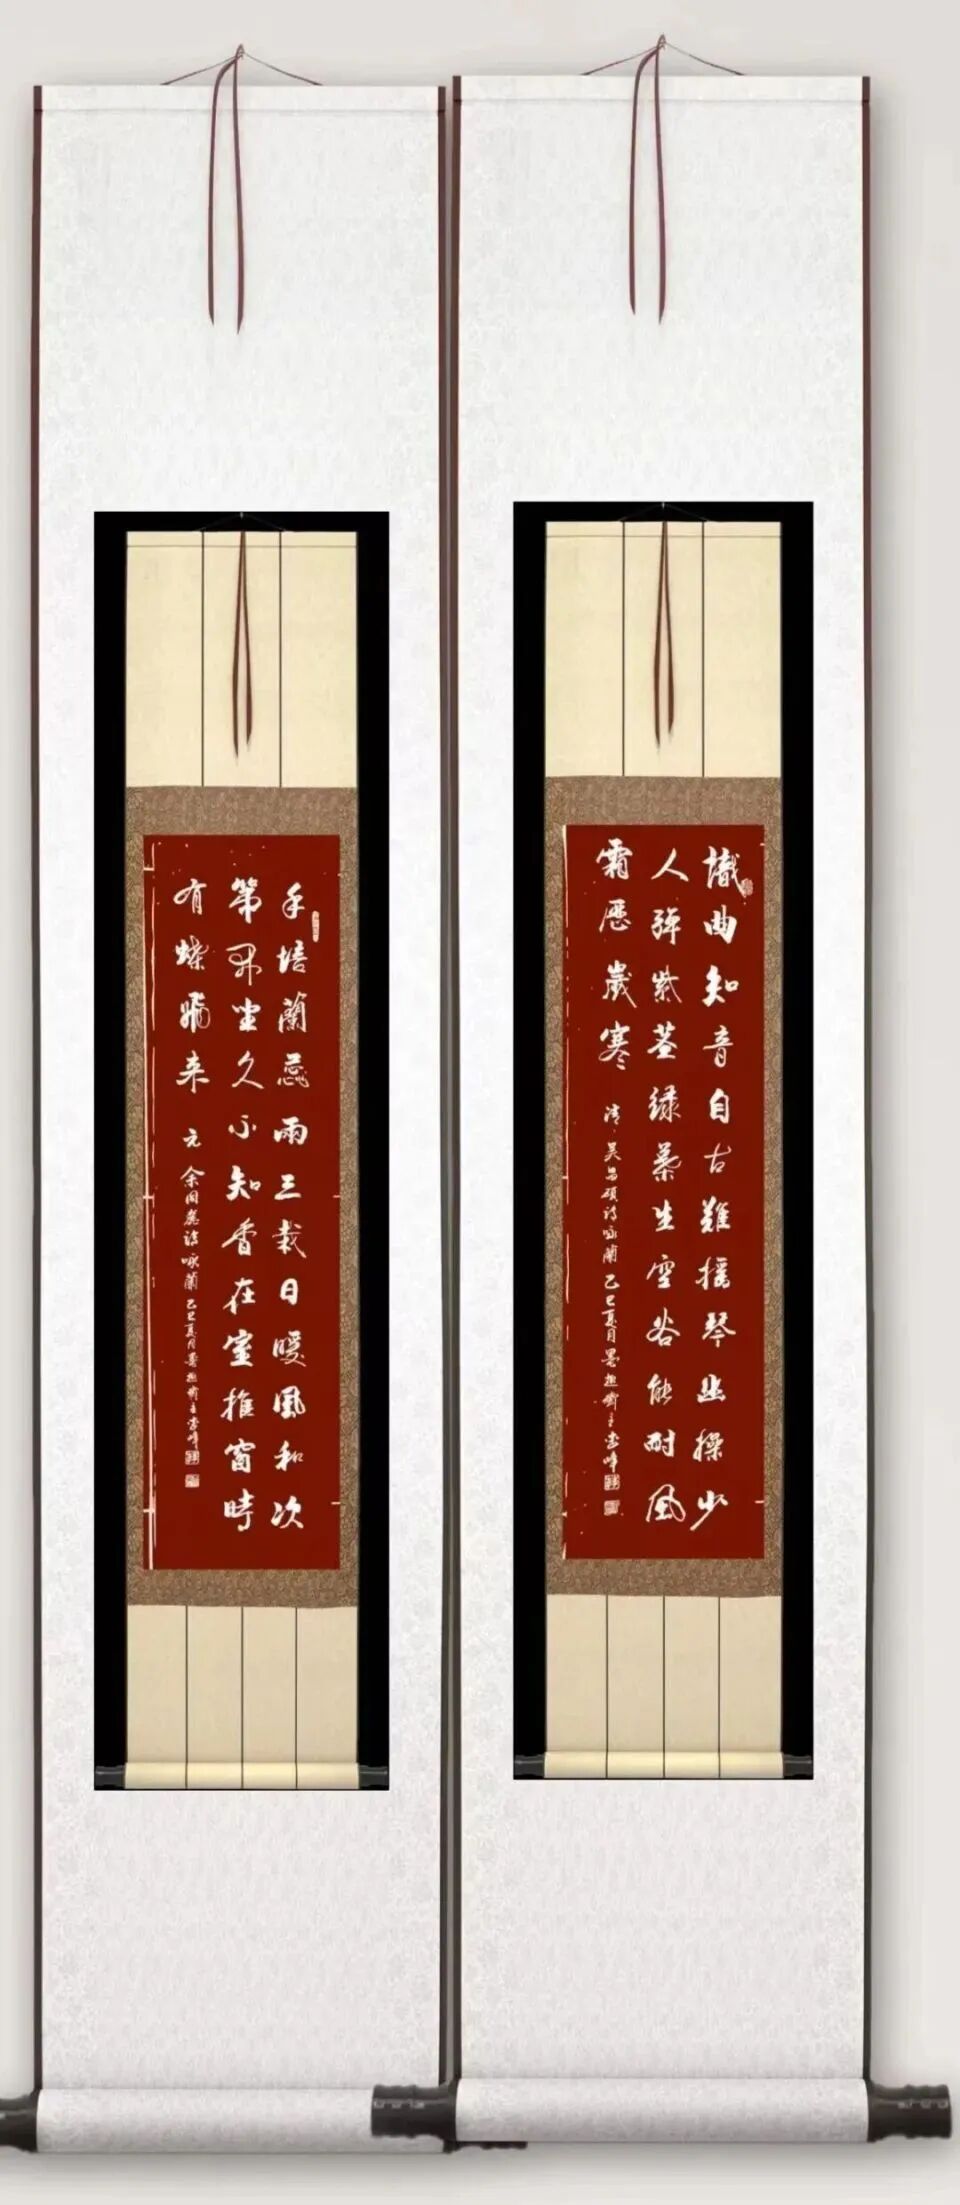 識曲知音自古難摇琴幽操少
人彈紫莖绿葉生空谷能耐風
霜歷歲寒 清吴昌碩詩咏蘭乙巳夏月墨趣齋主李峰
手培蘭蕊兩三栽日暖風和次
第開坐久不知香在室推窗時
有蝶飛来 元余同麓詩咏蘭乙巳夏月墨趣齋主李峰